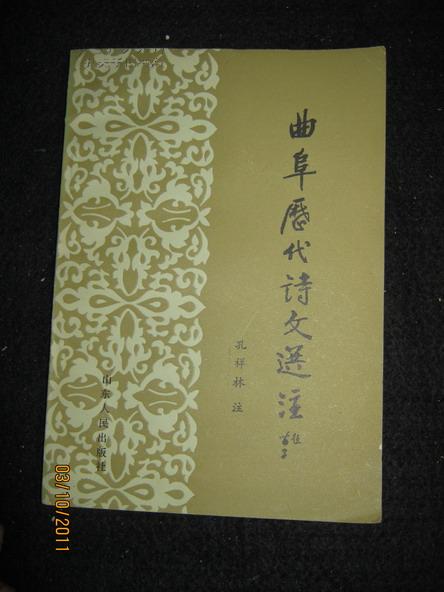 曲阜歷代詩文選注
孔祥林 注
山东人民出版社
03/10/2011